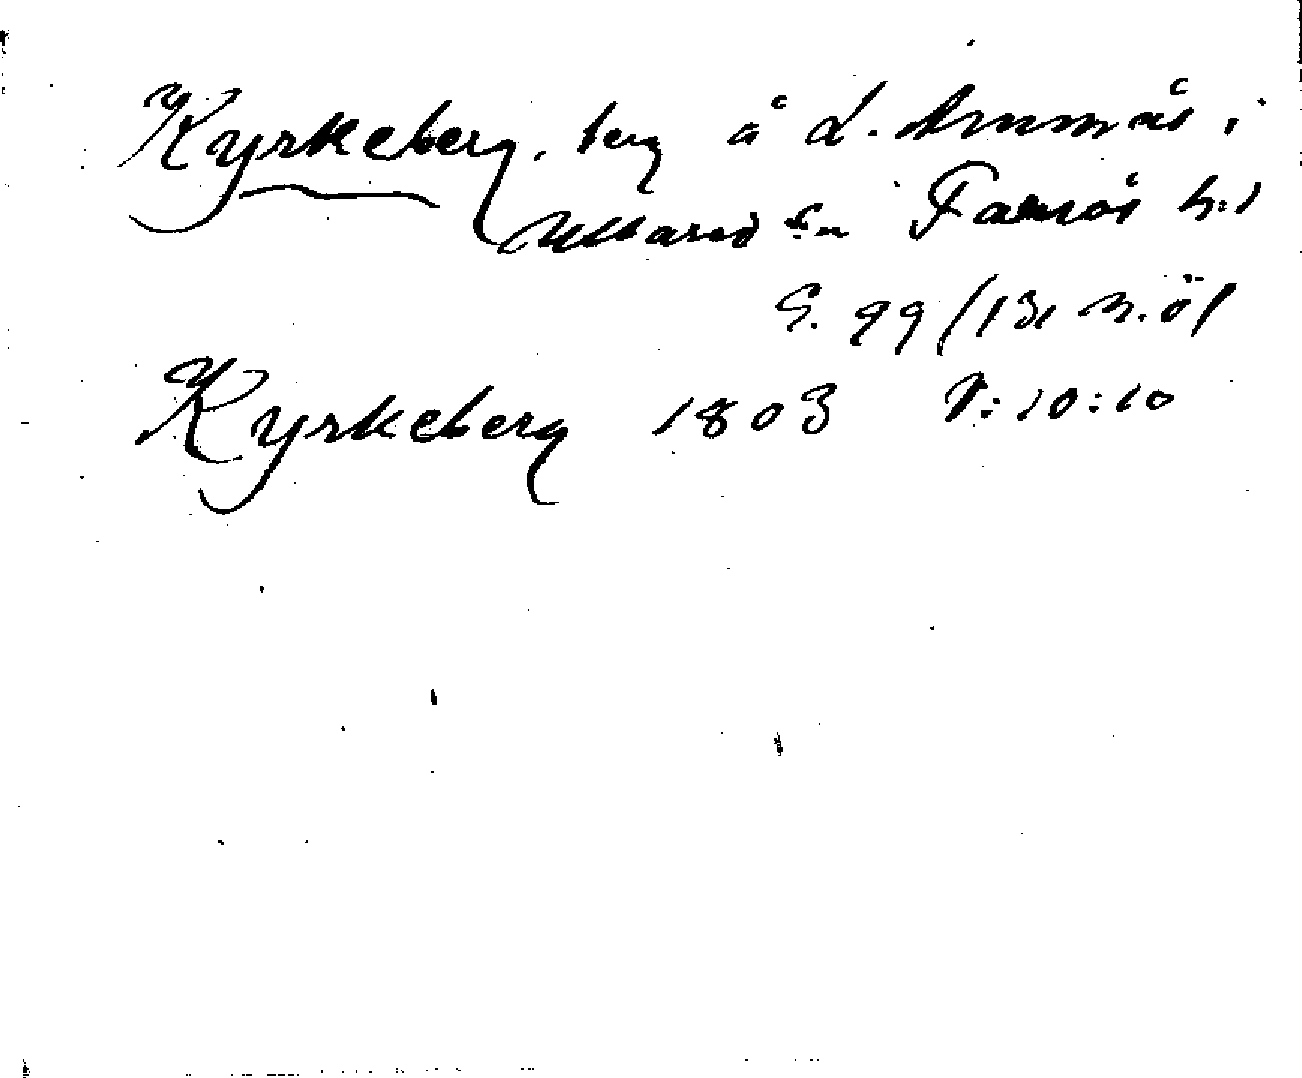 Kyrkeberg, berg å L. Ammås i
Ullared sn Faurås hd
S. 99/131 n. öl
Kyrkeberg 1803 V:10:10